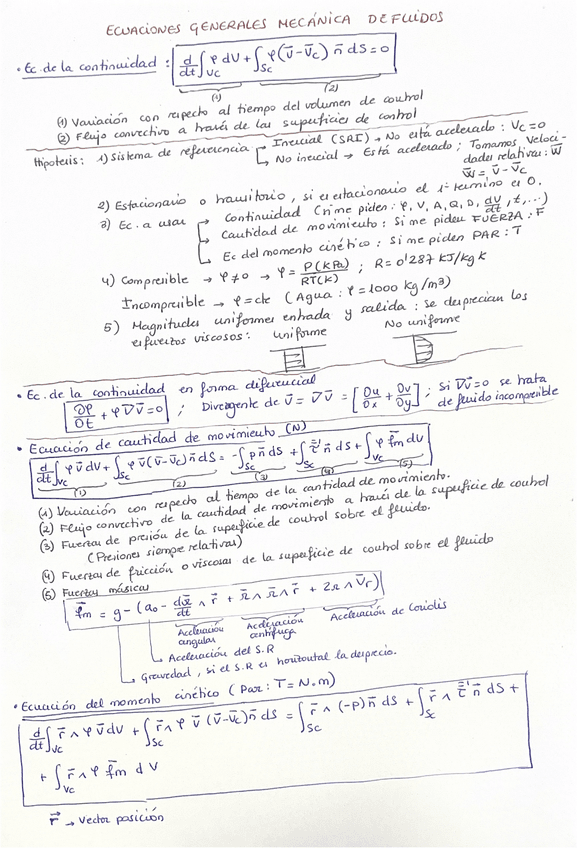 ECUACIONES GENERALES MECÁNICA DE FLUIDOS
• Ec. de la continuidad : d/dt ∫_VC φ dV + ∫_SC φ(v̄ - v̄c) n̄ dS = 0
(1) (2)
(1) Variación con respecto al tiempo del volumen de control
(2) Flujo convectivo a través de las superficies de control
Hipótesis: 1) Sistema de refererencia → Inercial (SRI) → No está acelerado : Vc = 0
→ No inercial → Está acelerado ; Tomamos veloci-
dades relativas : W̄
W̄ = v̄ - v̄c
2) Estacionario o transitorio, si es estacionario el 1er termino es 0.
3) Ec. a usar → Continuidad (si me piden : φ, V, A, Q, D, dV/dt, t, ...)
→ Cantidad de movimiento : Si me piden FUERZA : F
→ Ec del momento cinético : Si me piden PAR : T
4) Compresible → φ ≠ 0 → φ = P(kPa)/RT(K) ; R = 0'287 KJ/kg K
Incompresible → φ = cte (Agua : φ = 1000 kg/m³)
5) Magnitudes uniformes entrada y salida : se desprecian los
esfuerzos viscosos : uniforme No uniforme
• Ec. de la continuidad en forma diferencial
∂φ/∂t + φ ∇v̄ = 0 ; Divergente de v̄ = ∇v̄ = [∂u/∂x + ∂v/∂y] ; Si ∇v̄ = 0 se trata
de fluido incompresible
• Ecuación de cantidad de movimiento (N)
d/dt ∫_VC φ v̄ dV + ∫_SC φ v̄(v̄ - v̄c) n̄ dS = - ∫_SC p n̄ dS + ∫_SC τ̿' n̄ dS + ∫_VC φ f̄m dV
(1) (2) (3) (4) (5)
(1) Variación con respecto al tiempo de la cantidad de movimiento.
(2) Flujo convectivo de la cantidad de movimiento a través de la superficie de control
(3) Fuerzas de presión de la superficie de control sobre el fluido.
(Presiones siempre relativas)
(4) Fuerzas de fricción o viscosas de la superficie de control sobre el fluido
(5) Fuerzas másicas
f̄m = g - (a₀ - dΩ̄/dt ∧ r̄ + Ω̄ ∧ Ω̄ ∧ r̄ + 2Ω ∧ V̄r)
Aceleración angular Aceleración centrífuga Aceleración de Coriolis
Aceleración del S.R
Gravedad, si el S.R es horizontal la desprecio.
• Ecuación del momento cinético (Par : T = N.m)
d/dt ∫_VC r̄ ∧ φ v̄ dV + ∫_SC r̄ ∧ φ v̄ (v̄ - v̄c) n̄ dS = ∫_SC r̄ ∧ (-p) n̄ dS + ∫_SC r̄ ∧ τ̿' n̄ dS +
+ ∫_VC r̄ ∧ φ f̄m dV
r⃗ → vector posición